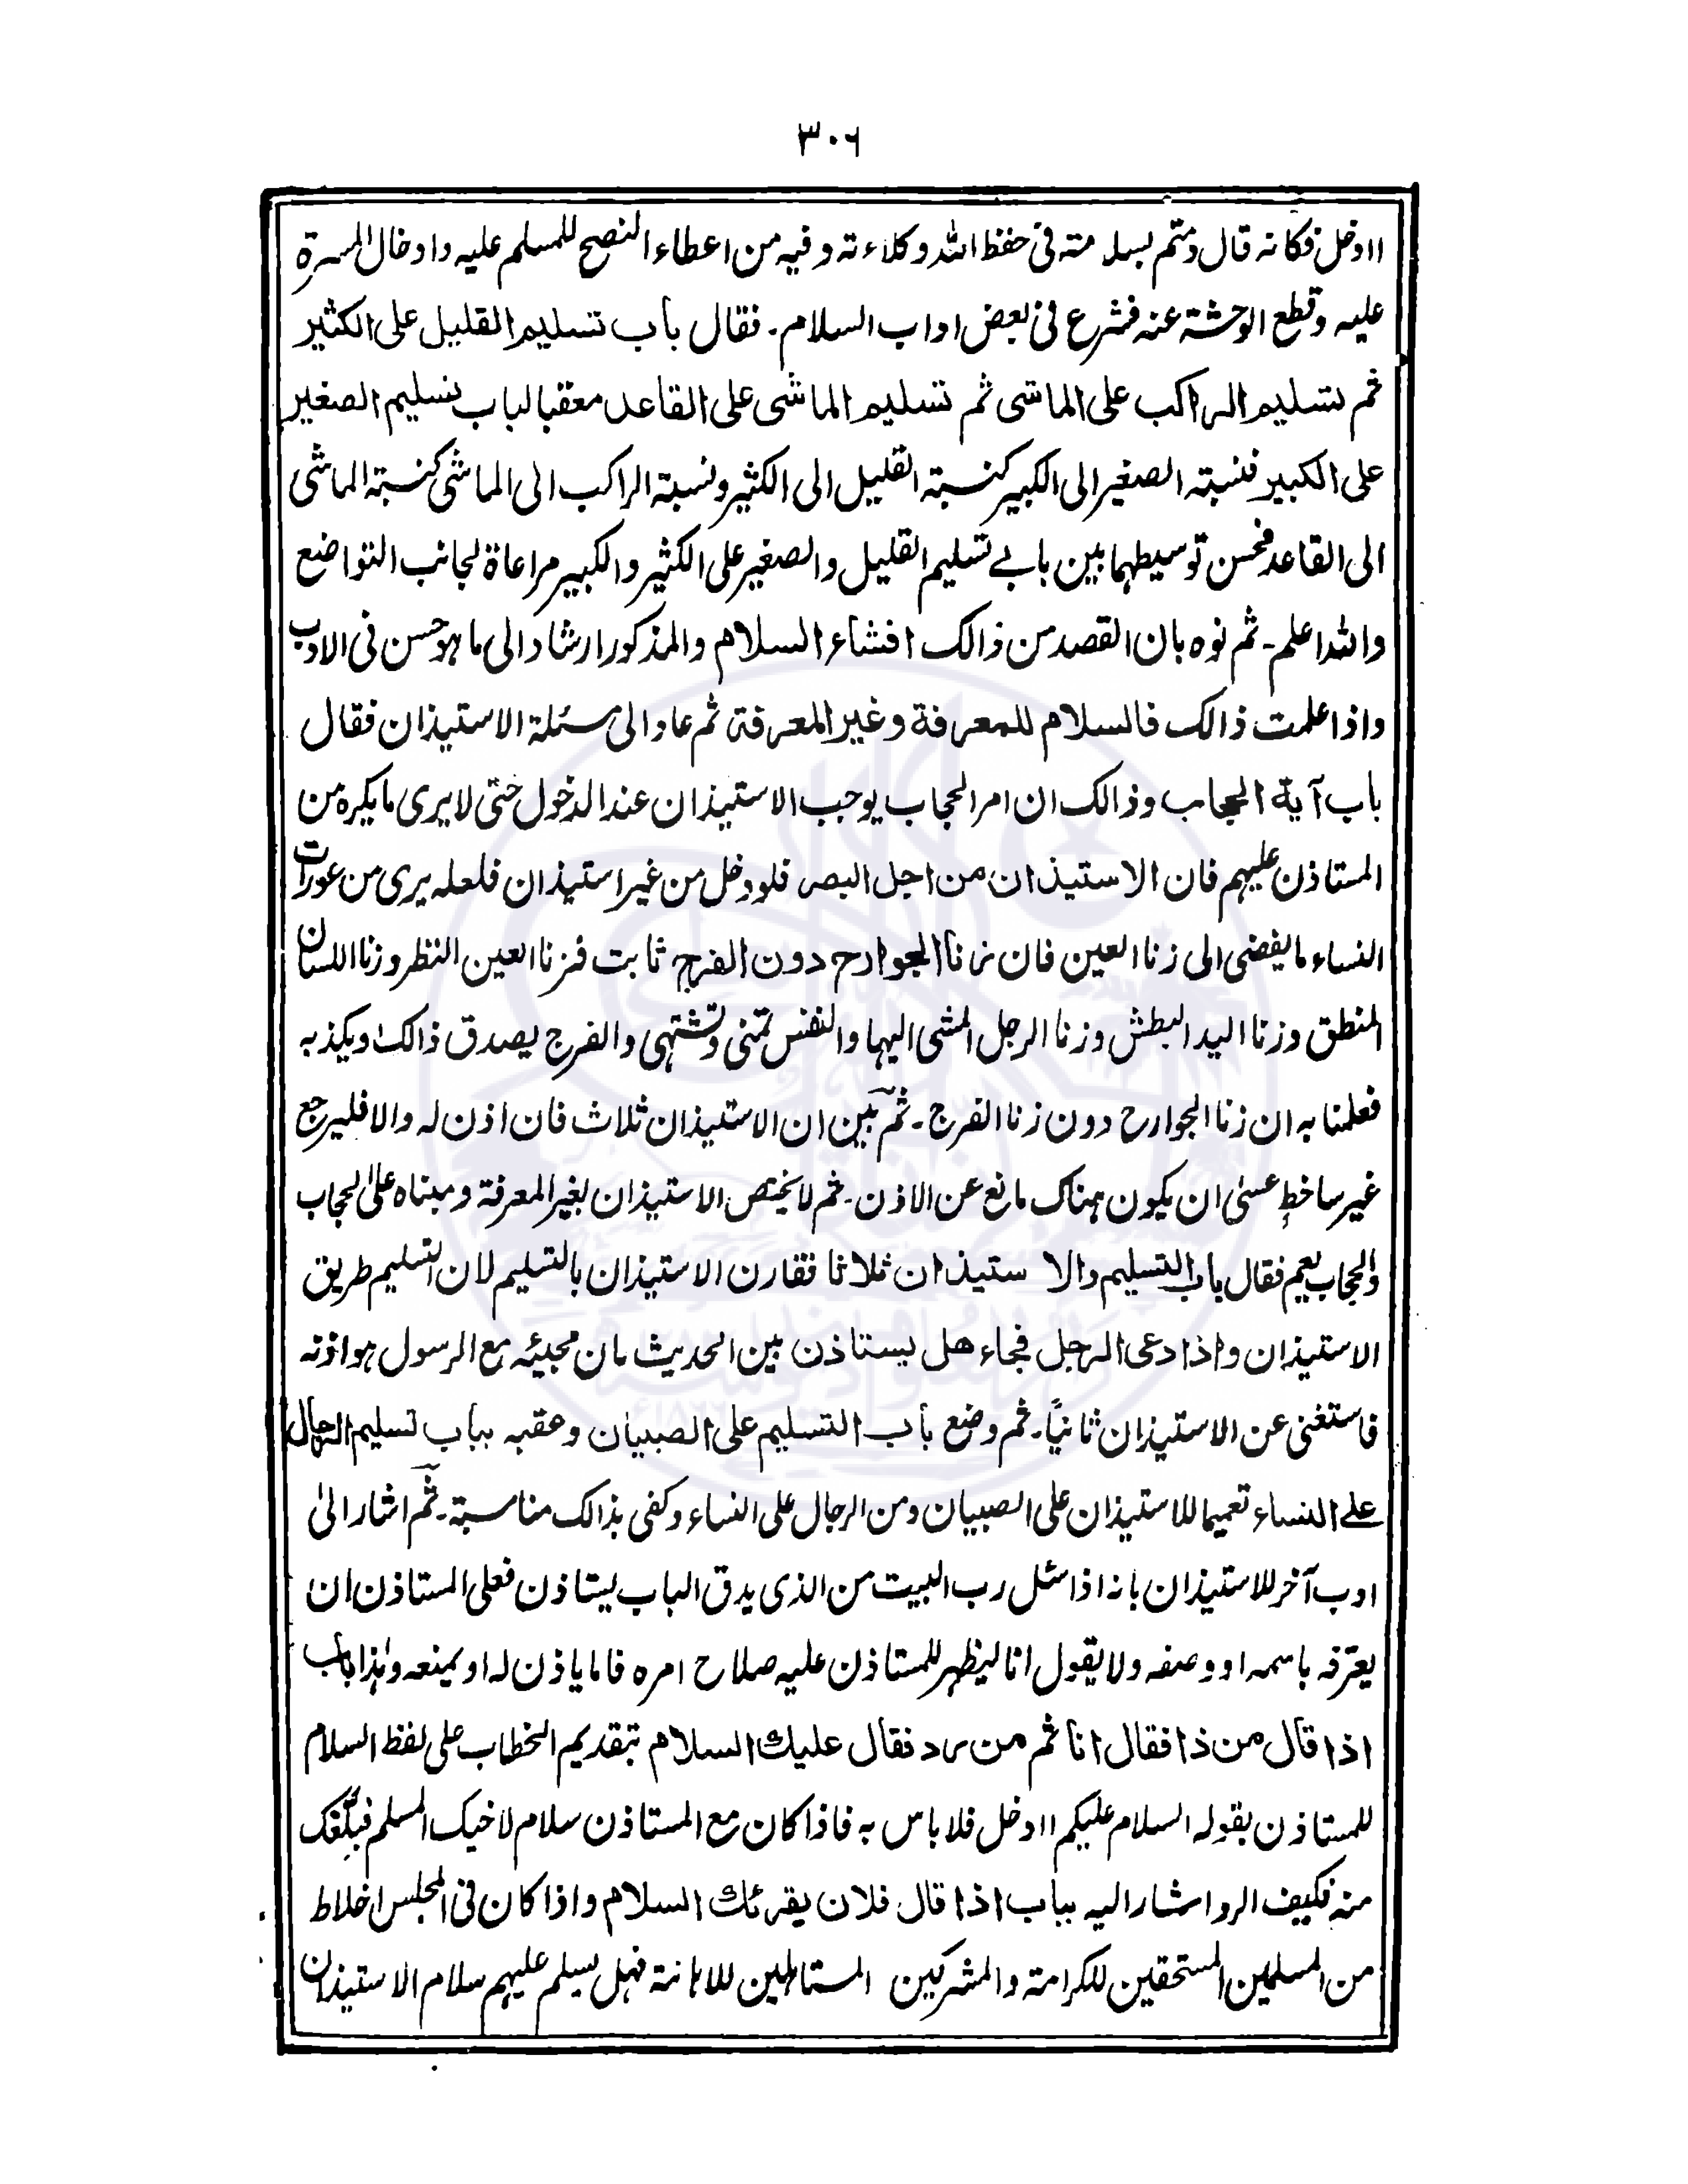 ٣٠٦
اادخل فكانه قال دمتم بسلامته فى حفظ الله وكلاءته وفيه من اعطاء النصح للمسلم عليه وادخال المسرة
عليه وقطع الوحشة عنه فشرع فى بعض اداب السلام۔ فقال باب تسليم القليل على الكثير
ثم تسليم الراكب على الماشى ثم تسليم الماشى على القاعد معقبا لباب تسليم الصغير
على الكبير فنسبته الصغير الى الكبير كنسبة القليل الى الكثير ونسبة الراكب الى الماشى كنسبة الماشى
الى القاعد فحسن توسيطهما بين بابے تسليم القليل والصغير على الكثير والكبير مراعاة لجانب التواضع
والله اعلم۔ ثم نوه بان القصد من ذالك افشاء السلام والمذكور ارشاد الى ما هو حسن فى الادب
واذا علمت ذالك فالسلام للمعرفة وغير المعرفة ثم عاد الى مسئلة الاستيذان فقال
باب آية الحجاب وذالك ان امر الحجاب يوجب الاستيذان عند الدخول حتى لا يرى ما يكره من
المستاذن عليهم فان الاستيذان من اجل البصر فلو دخل من غير استيذان فلعله يرى من عورات
النساء ما يفضى الى زنا العين فان زنا الجوارح دون الفرج ثابت فزنا العين النظر وزنا اللسان
المنطق وزنا اليد البطش وزنا الرجل المشى اليها والنفس تمنى وتشتهى والفرج يصدق ذالك ويكذبه
فعلمنا به ان زنا الجوارح دون زنا الفرج۔ ثم بين ان الاستيذان ثلاث فان اذن له والا فليرجع
غير ساخطٍ عسىٰ ان يكون هناك مانع عن الاذن۔ ثم لا يختص الاستيذان بغير المعرفة ومبناه على الحجاب
والحجاب يعم فقال باب التسليم والاستيذان ثلاثا فقارن الاستيذان بالتسليم لان التسليم طريق
الاستيذان واذا دعى الرجل فجاء هل يستاذن بين الحديث بان مجيئه مع الرسول هو اذنه
فاستغنى عن الاستيذان ثانيًا۔ ثم وضع باب التسليم على الصبيان وعقبه بباب تسليم الرجال
علے النساء تعميما للاستيذان على الصبيان ومن الرجال على النساء وكفى بذالك مناسبة۔ ثم اشار الىٰ
ادب آخر للاستيذان بانه اذا سئل رب البيت من الذى يدق الباب ليستاذن فعلى المستاذن ان
يعرفه باسمه او وصفه ولا يقول انا ليظهر للمستاذن عليه صلاح امره فاما ياذن له او يمنعه وهذا باب
اذا قال من ذا فقال انا ثم من رد فقال عليك السلام بتقديم الخطاب على لفظ السلام
للمستاذن بقوله السلام عليكم اادخل فلا باس به فاذا كان مع المستاذن سلام لاخيك المسلم فبلّغك
منه فكيف الرد اشار اليه بباب اذا قال فلان يقرئك السلام واذا كان فى المجلس اخلاط
من المسلمين المستحقين للكرامة والمشركين المستاهلين للاهانة فهل يسلم عليهم سلام الاستيذان